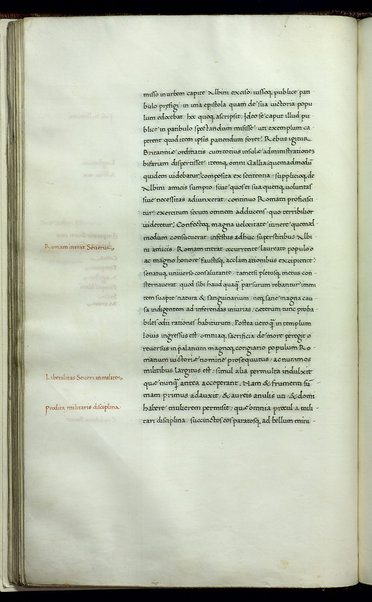 misso in urbem capite Albini exciso: iussoq; publice pati
bulo prefigi in una epistola quam de sua uictoria popu
lum edocebat hec quoq; ascripsit: Ideo se caput illud pu
blice in patibulo spectandum misisse: uti exemplum ca
perent quod item ipsis pauendum foret. Rebus igitur
Britannie ordinatis cum totius insule administrationes
bifariam dispertisset: itemq; omni Gallia quemadmodum
quidem uidebatur composita ex sententia: supplicioq; de
Albini amicis sumpto siue quos et sua quenq; uoluntas
siue necessitas adiunxerat: continuo Romam proficisci
tur: exercitum secum omnem adducens quo terribilior
uideretur: Confectoq; magna uelocitate itinere quemad
modum consueuerat: infestus adhuc superstitibus Albi
Romam intrat Seuerus.
ni amicis. Romam intrat: occurrente laureato populo
ac magno honore faustisq; acclamationibus excipiente:
senatuq; uniuerso consalutante: tametsi plerosq; metus con
sternauerat: quod sibi haud quaq; parsurum rebantur inimi
tem suapte natura & sanguinarium neq; sane magna cau
sa indigentem ad inferendas iniurias: ceterum tunc proba
biles odii rationes habiturum. Postea uero q; in templum
Iouis ingressus est: omniaq; sacrificia de more peregit:
reuersus in palatium magnoq; congiario populum Ro
manum uictorie nomine prosequutus: ac nummos
Liberalitas Seueri in milites.
militibus largitus est: simul alia permulta indulxit
que nunq; antea acceperant. Nam & frumenti sum
mam primus adauxit: & aureis anulis uti: & domi
Prodita militaris disciplina.
habere mulierem permisit: que omnia procul a mili
tari disciplina: succinctos comparatosq; ad bellum emini